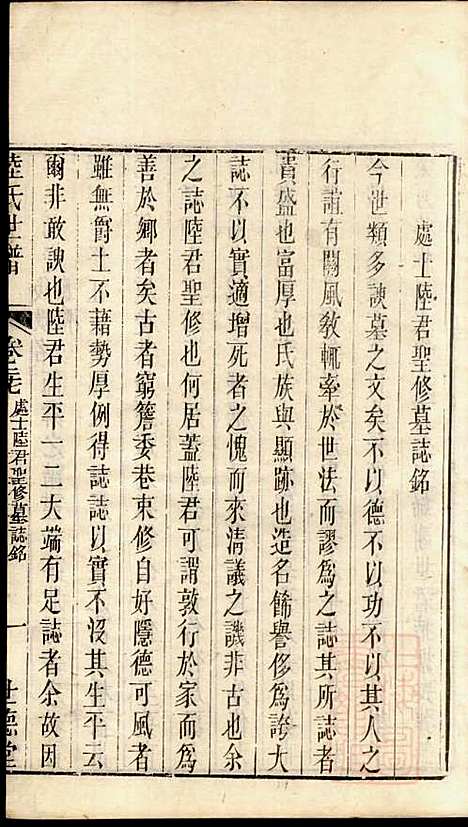 處士陸君聖修墓誌銘
今世類多諛墓之文矣不以德不以功不以其人之
行誼有關風敎輒牽於世法而謬爲之誌其所誌者
貴盛也富厚也氏族與顯跡也造名餙譽侈爲誇大
誌不以實適增死者之愧而來清議之譏非古也余
之誌陸君聖修也何居葢陸君可謂敦行於家而為
善於鄉者矣古者窮簷委巷束修自好隱德可風者
雖無爵土不藉勢厚例得誌誌以實不沒其生平云
爾非敢諛也陸君生平一二大端有足誌者余故因
陸氏世譜
卷之
處士陸君聖修墓誌銘
一
世德堂